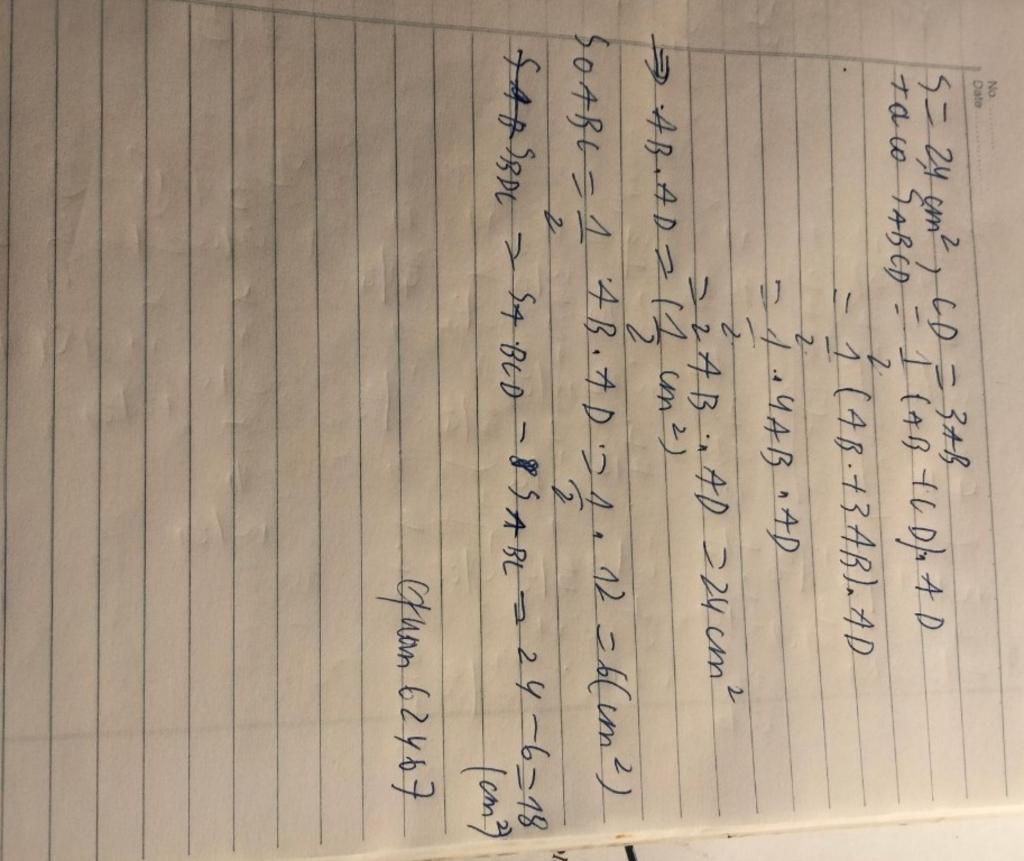 No.
Date
S = 24 cm², CD = 3AB
ta có S_ABCD = 1/2 (AB + CD). AD
= 1/2 (AB + 3AB). AD
= 1/2 . 4AB . AD
= 2 AB . AD = 24 cm²
=> AB . AD = (1/2 cm²)
SABC = 1/2 AB . AD = 1/2 . 12 = 6(cm²)
S_BDC = S_ABCD - S_ABC = 24 - 6 = 18
(cm²)
62467